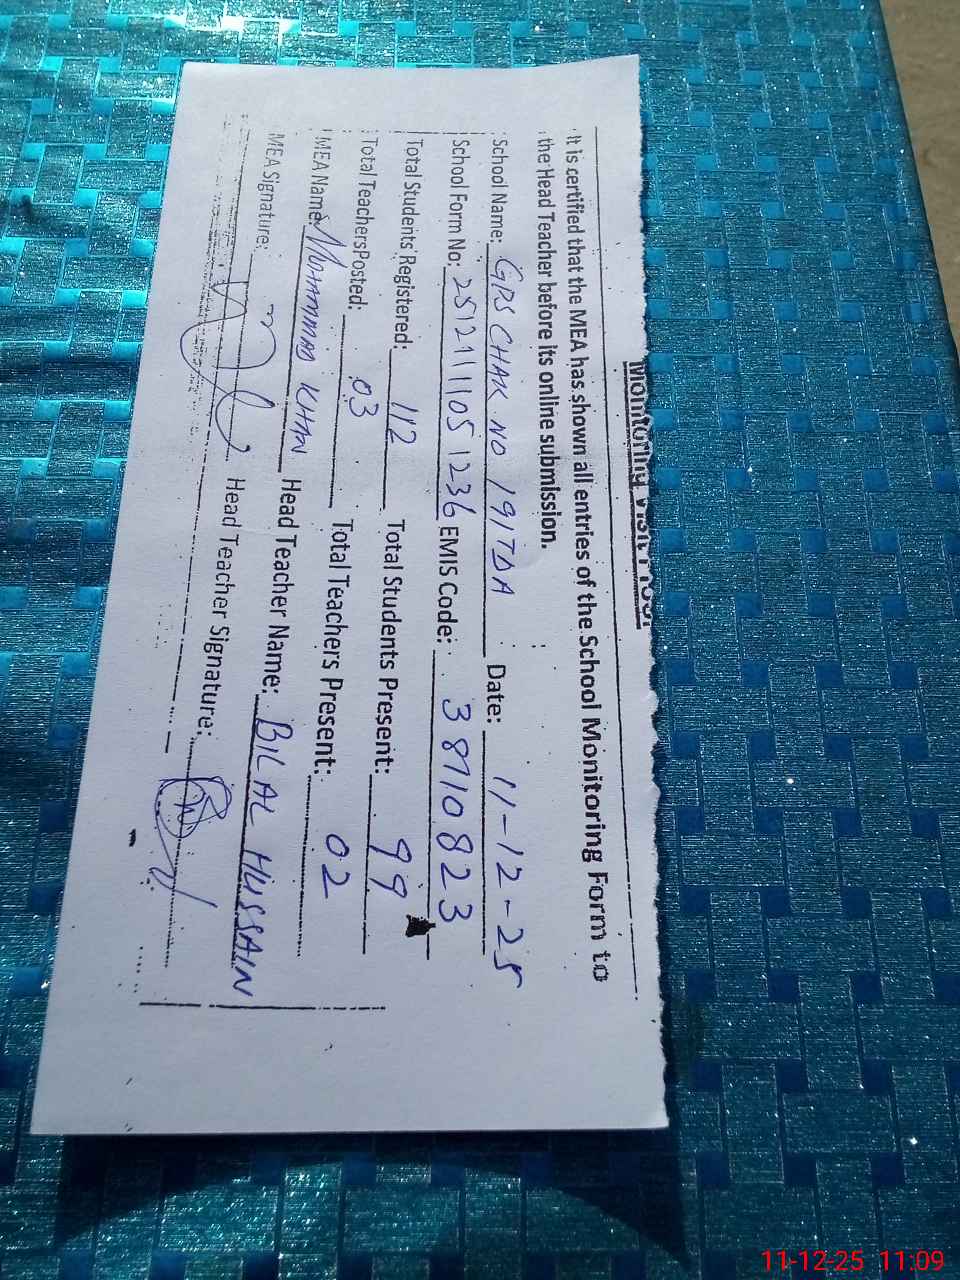 Monitoring Visit Proof
It is certified that the MEA has shown all entries of the School Monitoring Form to
the Head Teacher before its online submission.
School Name: GPS CHAK NO 191TDA Date: 11-12-25
School Form No: 251211105 1236 EMIS Code: 38710823
Total Students Registered: 112 Total Students Present: 99
Total Teachers Posted: 03 Total Teachers Present: 02
MEA Name: MOHAMMAD KHAN Head Teacher Name: BILAL HUSSAIN
MEA Signature: Head Teacher Signature:
11-12-25 11:09